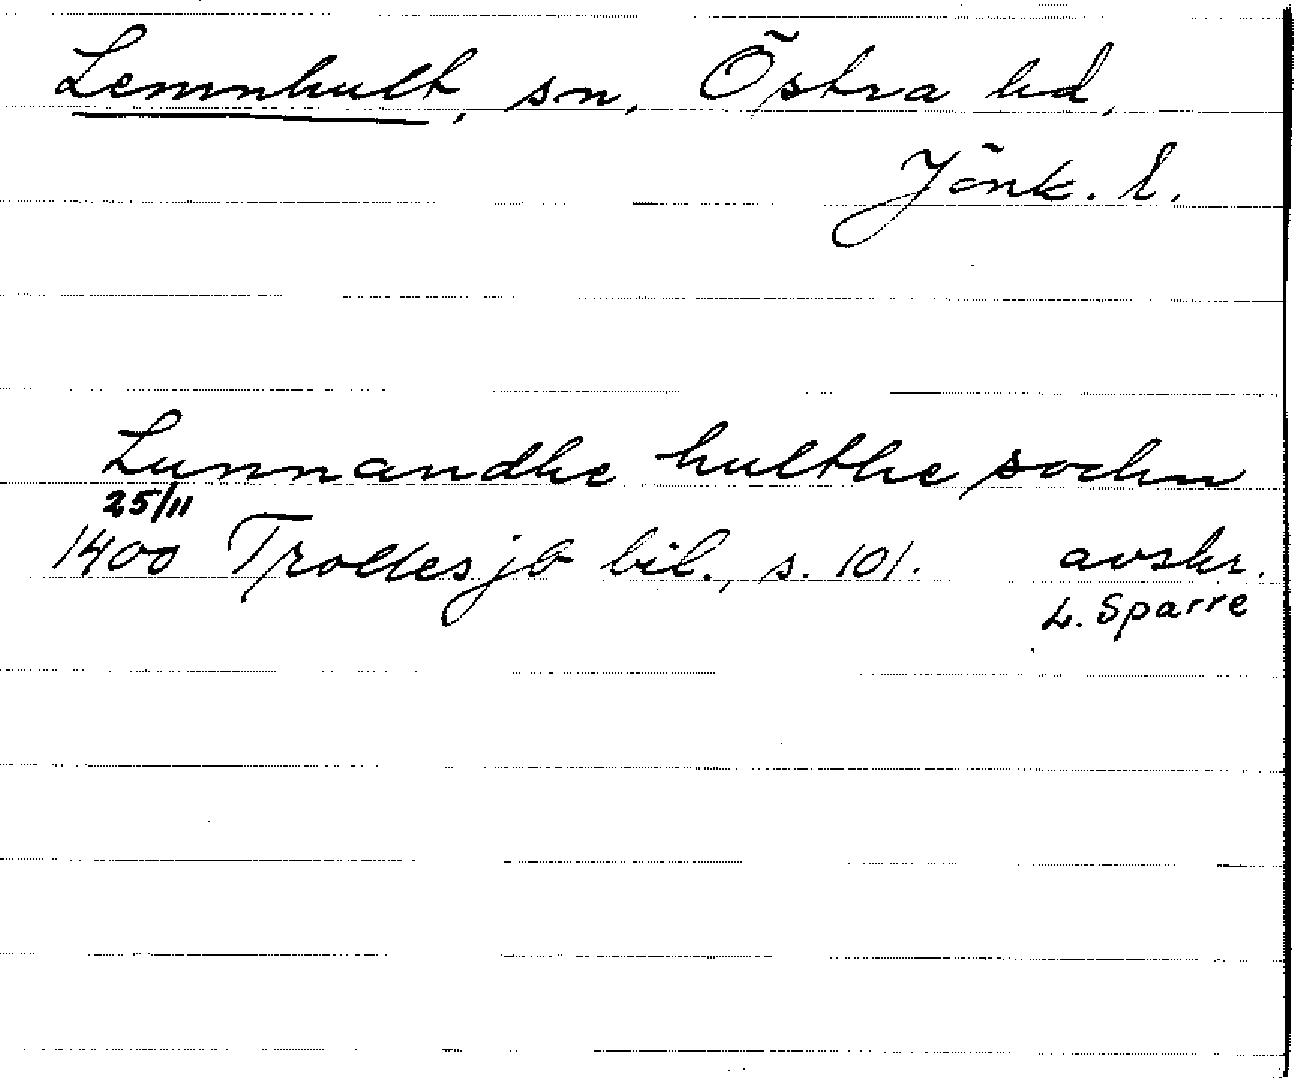 Lemnhult, sn, Östra hd,
Jönk. l.
Lunnandhe hulthe sochn
25/11
1400 Trolles jb bil., s. 101. avskr.
L. Sparre